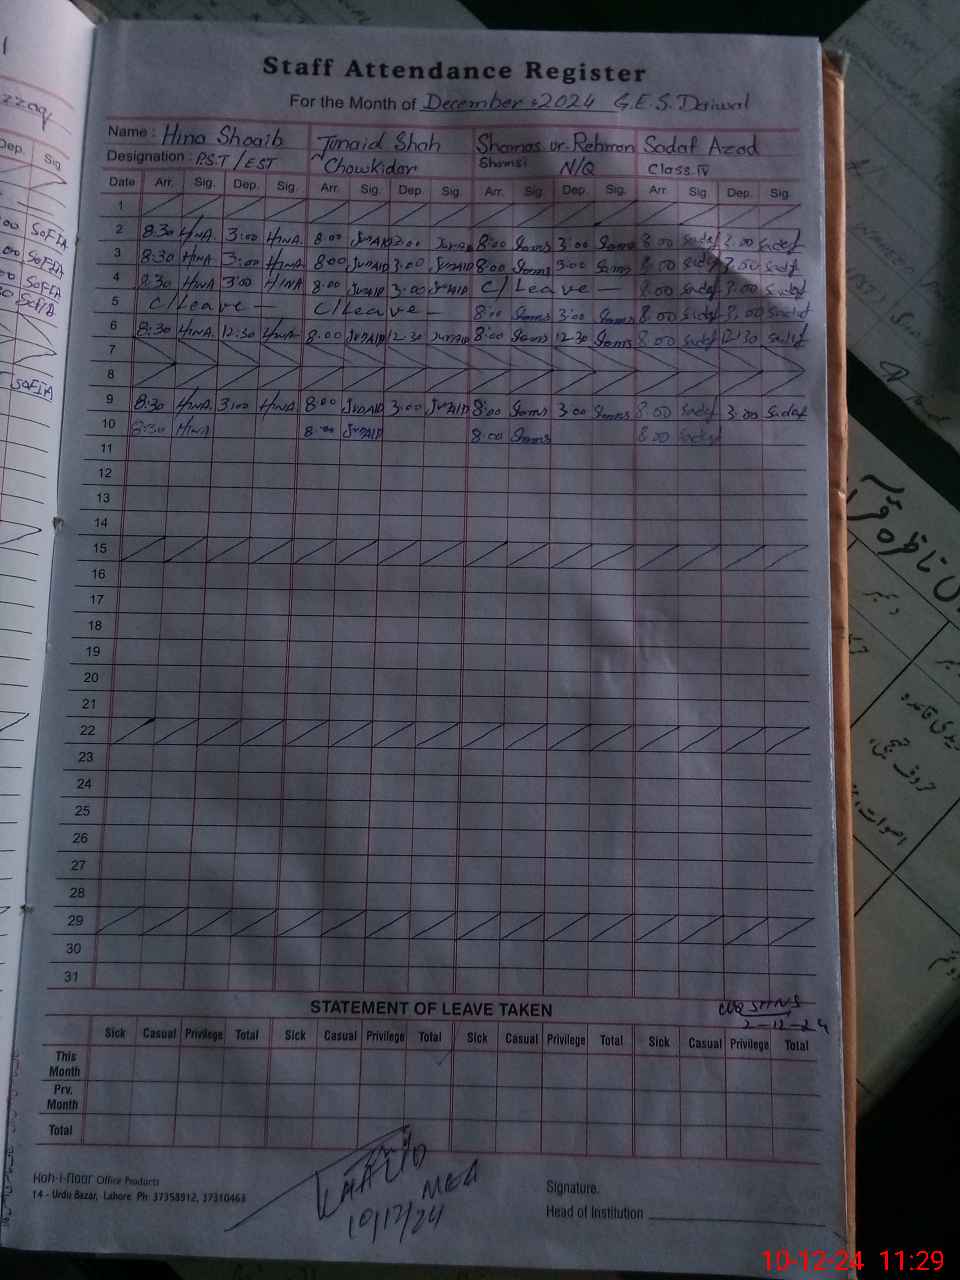 Staff Attendance Register
For the Month of December 2024 G.E.S. Dariwal
Name : Hina Shoaib Junaid Shah Shamas ur Rehman Sadaf Azad
Designation : P.S.T / EST Chowkidar Shamsi N/Q Class IV
Date Arr. Sig. Dep. Sig. Arr. Sig. Dep. Sig. Arr. Sig. Dep. Sig. Arr. Sig. Dep. Sig.
1
2 8.30 HINA 3:00 HINA 8.00 JUNAID 3:00 JUNAID 8:00 Shams 3:00 Shams 8.00 Sadaf 3.00 Sadaf
3 8:30 HINA 3:00 HINA 8:00 JUNAID 3.00 JUNAID 8:00 Shams 3:00 Shams 8.00 Sadaf 3.00 Sadaf
4 8.30 HINA 3:00 HINA 8:00 JUNAID 3:00 JUNAID C/Leave — 8.00 Sadaf 3.00 Sadaf
5 C/Leave — C/Leave — 8:00 Shams 3:00 Shams 8.00 Sadaf 3.00 Sadaf
6 8:30 HINA 12:30 HINA 8.00 JUNAID 12.30 JUNAID 8:00 Shams 12.30 Shams 8.00 Sadaf 12.30 Sadaf
7
8
9 8:30 HINA 3:00 HINA 8:00 JUNAID 3:00 JUNAID 8:00 Shams 3:00 Shams 8.00 Sadaf 3.00 Sadaf
10 8:30 HINA 8:00 JUNAID 8:00 Shams 8.00 Sadaf
11
12
13
14
15
16
17
18
19
20
21
22
23
24
25
26
27
28
29
30
31
STATEMENT OF LEAVE TAKEN
2-12-24
Sick Casual Privilege Total Sick Casual Privilege Total Sick Casual Privilege Total Sick Casual Privilege Total
This Month
Prv. Month
Total
MEA
10/12/24
Koh-i-Noor Office Products
14 - Urdu Bazar, Lahore Ph: 37358912, 37310463
Signature.
Head of Institution
Dep. Sig.
SOFIA
SOFIA
SOFIA
SOFIA
SOFIA
ناظرہ
حروف تہجی،
اصوات،
10-12-24 11:29